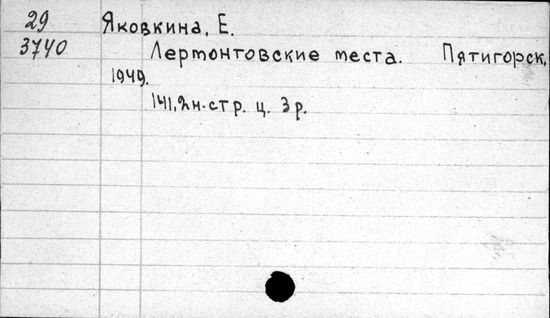 29 Яковкина, Е.
3740 Лермонтовские места. Пятигорск,
1949.
141,2н.стр. ц. 3р.